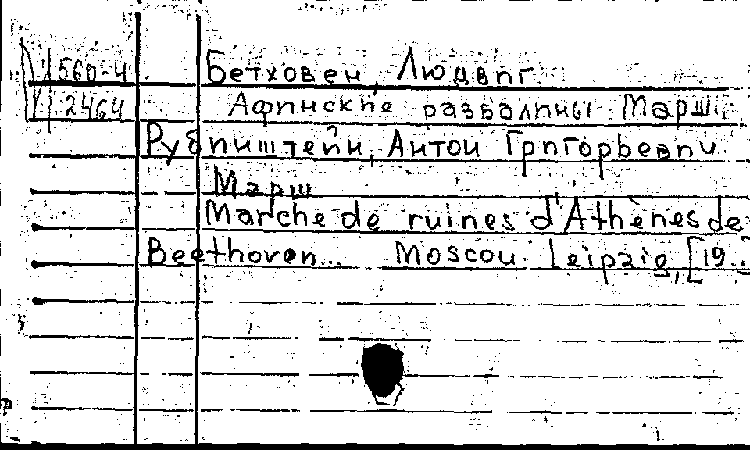 560-4 Бетховен, Людвиг
2464 Афинские развалины. Марш.
Рубинштейн, Антон Григорьевич.
Марш
Marche de ruines d'Athènes de
Beethoven... Moscou. Leipzig, [19..